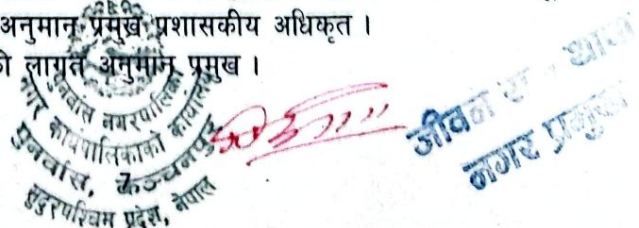 अनुमान प्रमुख प्रशासकीय अधिकृत ।
लागत अनुमान प्रमुख ।
पुनर्वास नगरपालिका
नगर कार्यपालिकाको कार्यालय
पुनर्वास, कञ्चनपुर
सुदुरपश्चिम प्रदेश, नेपाल
जीवन
नगर प्रमुख